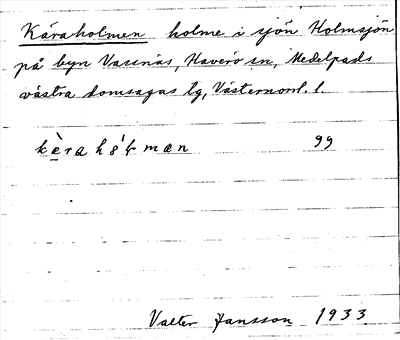 Käraholmen holme i sjön Holmsjön
på byn Vassnäs, Haverö sn, Medelpads
västra domsagas tg, Västernorrl. l.
kæ̀rahó̵ɫmæn 99
Valter Jansson 1933